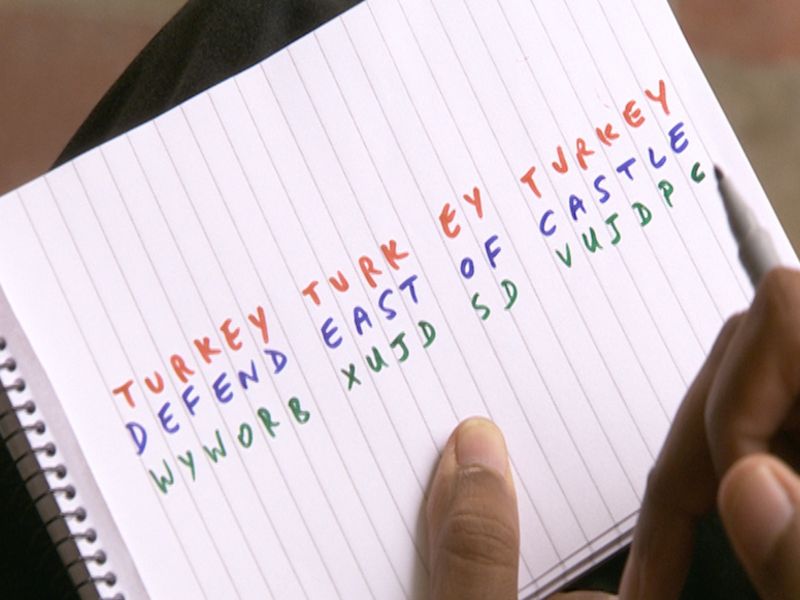 TURKEY TURK EY TURKEY
DEFEND EAST OF CASTLE
WYWORB XUJD SD VUJDPC